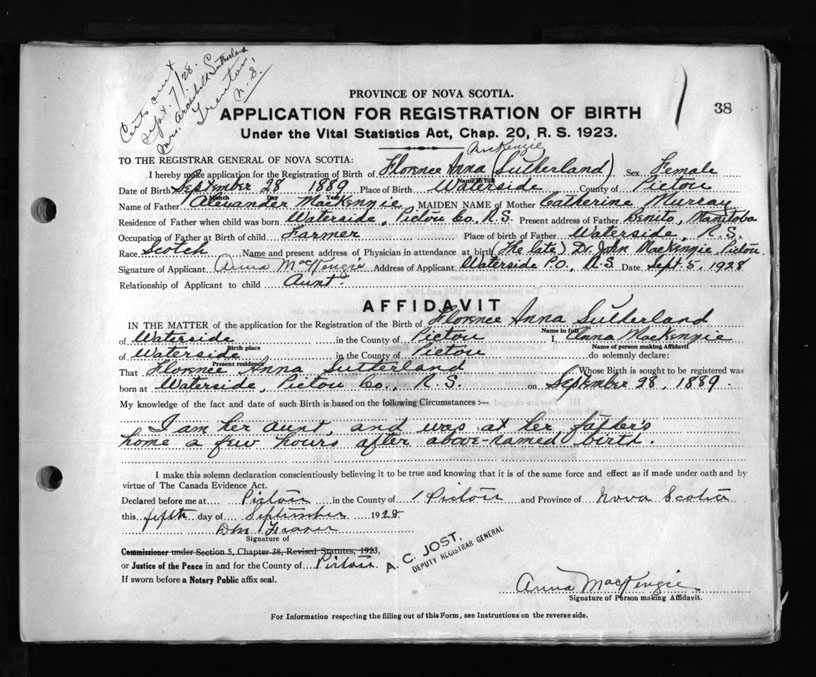 Certs out
Sept. 7/28.
Mrs. Archibald Sutherland
Trenton,
N.S.
PROVINCE OF NOVA SCOTIA.
38
APPLICATION FOR REGISTRATION OF BIRTH
Under the Vital Statistics Act, Chap. 20, R. S. 1923.
MacKenzie
TO THE REGISTRAR GENERAL OF NOVA SCOTIA:
I hereby make application for the Registration of Birth of Florence Anna (Sutherland) Sex Female
Name in full
Date of Birth September 28 1889 Place of Birth Waterside County of Pictou
Month Day Year
Name of Father Alexander MacKenzie MAIDEN NAME of Mother Catherine Murray
Residence of Father when child was born Waterside, Pictou Co. N.S. Present address of Father Benito, Manitoba
Occupation of Father at Birth of child Farmer Place of birth of Father Waterside N.S.
Race Scotch Name and present address of Physician in attendance at birth (The late) Dr. John MacKenzie, Pictou
Signature of Applicant Anna MacKenzie Address of Applicant Waterside P.O., N.S. Date Sept. 5, 1928
Relationship of Applicant to child Aunt.
AFFIDAVIT
IN THE MATTER of the application for the Registration of the Birth of Florence Anna Sutherland
Name in full
of Waterside in the County of Pictou I, Anna MacKenzie
Birth place Name of person making Affidavit
of Waterside in the County of Pictou do solemnly declare:
Present residence
That Florence Anna Sutherland Whose Birth is sought to be registered was
born at Waterside, Pictou Co., N.S. on September 28, 1889.
My knowledge of the fact and date of such Birth is based on the following Circumstances :—
I am her aunt, and was at her father's
home a few hours after above-named birth.
I make this solemn declaration conscientiously believing it to be true and knowing that it is of the same force and effect as if made under oath and by
virtue of The Canada Evidence Act.
Declared before me at Pictou in the County of Pictou and Province of Nova Scotia
this fifth day of September 1928
Signature of
Commissioner under Section 5, Chapter 38, Revised Statutes, 1923,
or Justice of the Peace in and for the County of Pictou.
A. C. JOST,
DEPUTY REGISTRAR GENERAL
If sworn before a Notary Public affix seal.
Anna MacKenzie
Signature of Person making Affidavit.
For Information respecting the filling out of this Form, see Instructions on the reverse side.